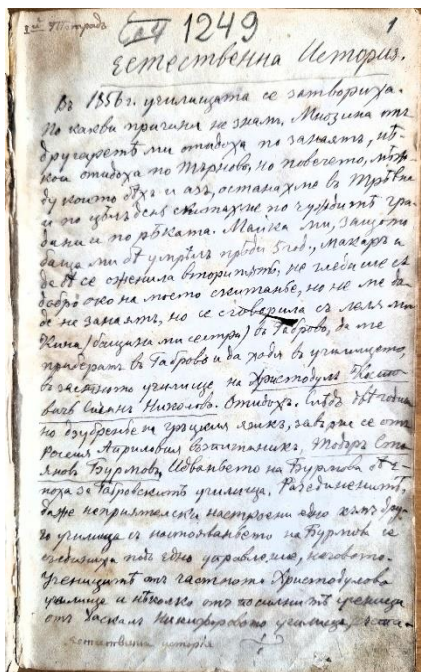 1й Тетрадъ
1249
1
Естественна История.
Въ 1856 г. училищата се затвориха.
По какви причини не знаѭ. Мнозина отъ
другаретѣ ми отидоха по занаятъ, нѣ-
кои отидоха по Търново, но повечето, меж-
ду които бѣхъ и азъ, останахме въ Трѣвна
и по цѣлъ день скитахме по чуждитѣ гра-
дини и по рѣката. Майка ми, защото
баща ми бѣ умрѣлъ прѣди 5 год., макаръ и
да се оженила вторитятъ, не гледаше съ
добро око на моето скитанье, но не ме да-
де на занаятъ, но се сговорила съ леля ми
Кина (бащина ми сестра) въ Габрово, да ме
прибератъ въ Габрово и да ходя въ училището,
въ частното училище на Христодулъ Костно-
вачъ Сичанъ Николовъ. Отидохъ. Слѣдъ двѣ годиш-
но друбренье на гръцкия язикъ, завърже се отъ
Росия Априловия възпитаникъ, Тодоръ Сто-
яновъ Бурмовъ. Идваньето на Бурмова бѣ е-
поха за Габровскитѣ училища. Разединенитѣ,
даже неприятелски настроени едно къмъ дру-
го училища съ настояваньето на Бурмова се
съединиха подъ едно управление, неговото.
Ученицитѣ отъ частното Христодулово
училище и нѣколко отъ по силнитѣ ученици
отъ Даскалъ Никифоровото училище,
естествена история